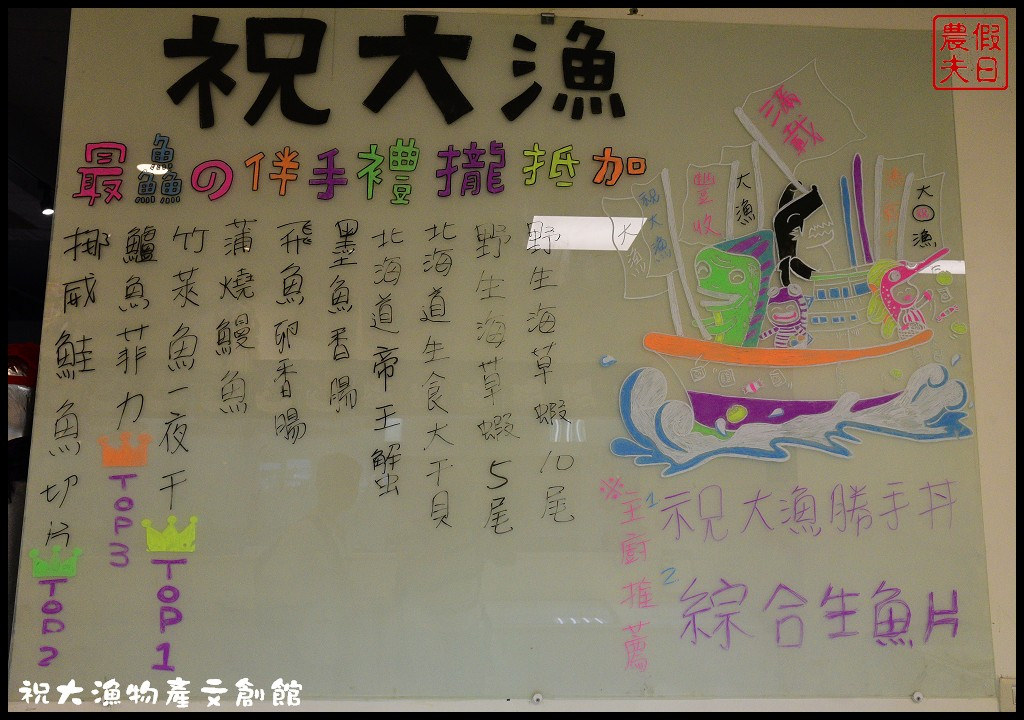 祝大漁
最鱻の伴手禮攏抵加
野生海草蝦10尾
野生海草蝦5尾
北海道生食大干貝
北海道帝王蟹
墨魚香腸
飛魚卵香腸
蒲燒鰻魚
竹萊魚一夜干
TOP1
鱸魚菲力
TOP3
挪威鮭魚切片
TOP2
滿載
豐收
大漁
祝大漁
大漁
※主廚推薦
1祝大漁勝手丼
2綜合生魚片
假日農夫
祝大漁物產文創館